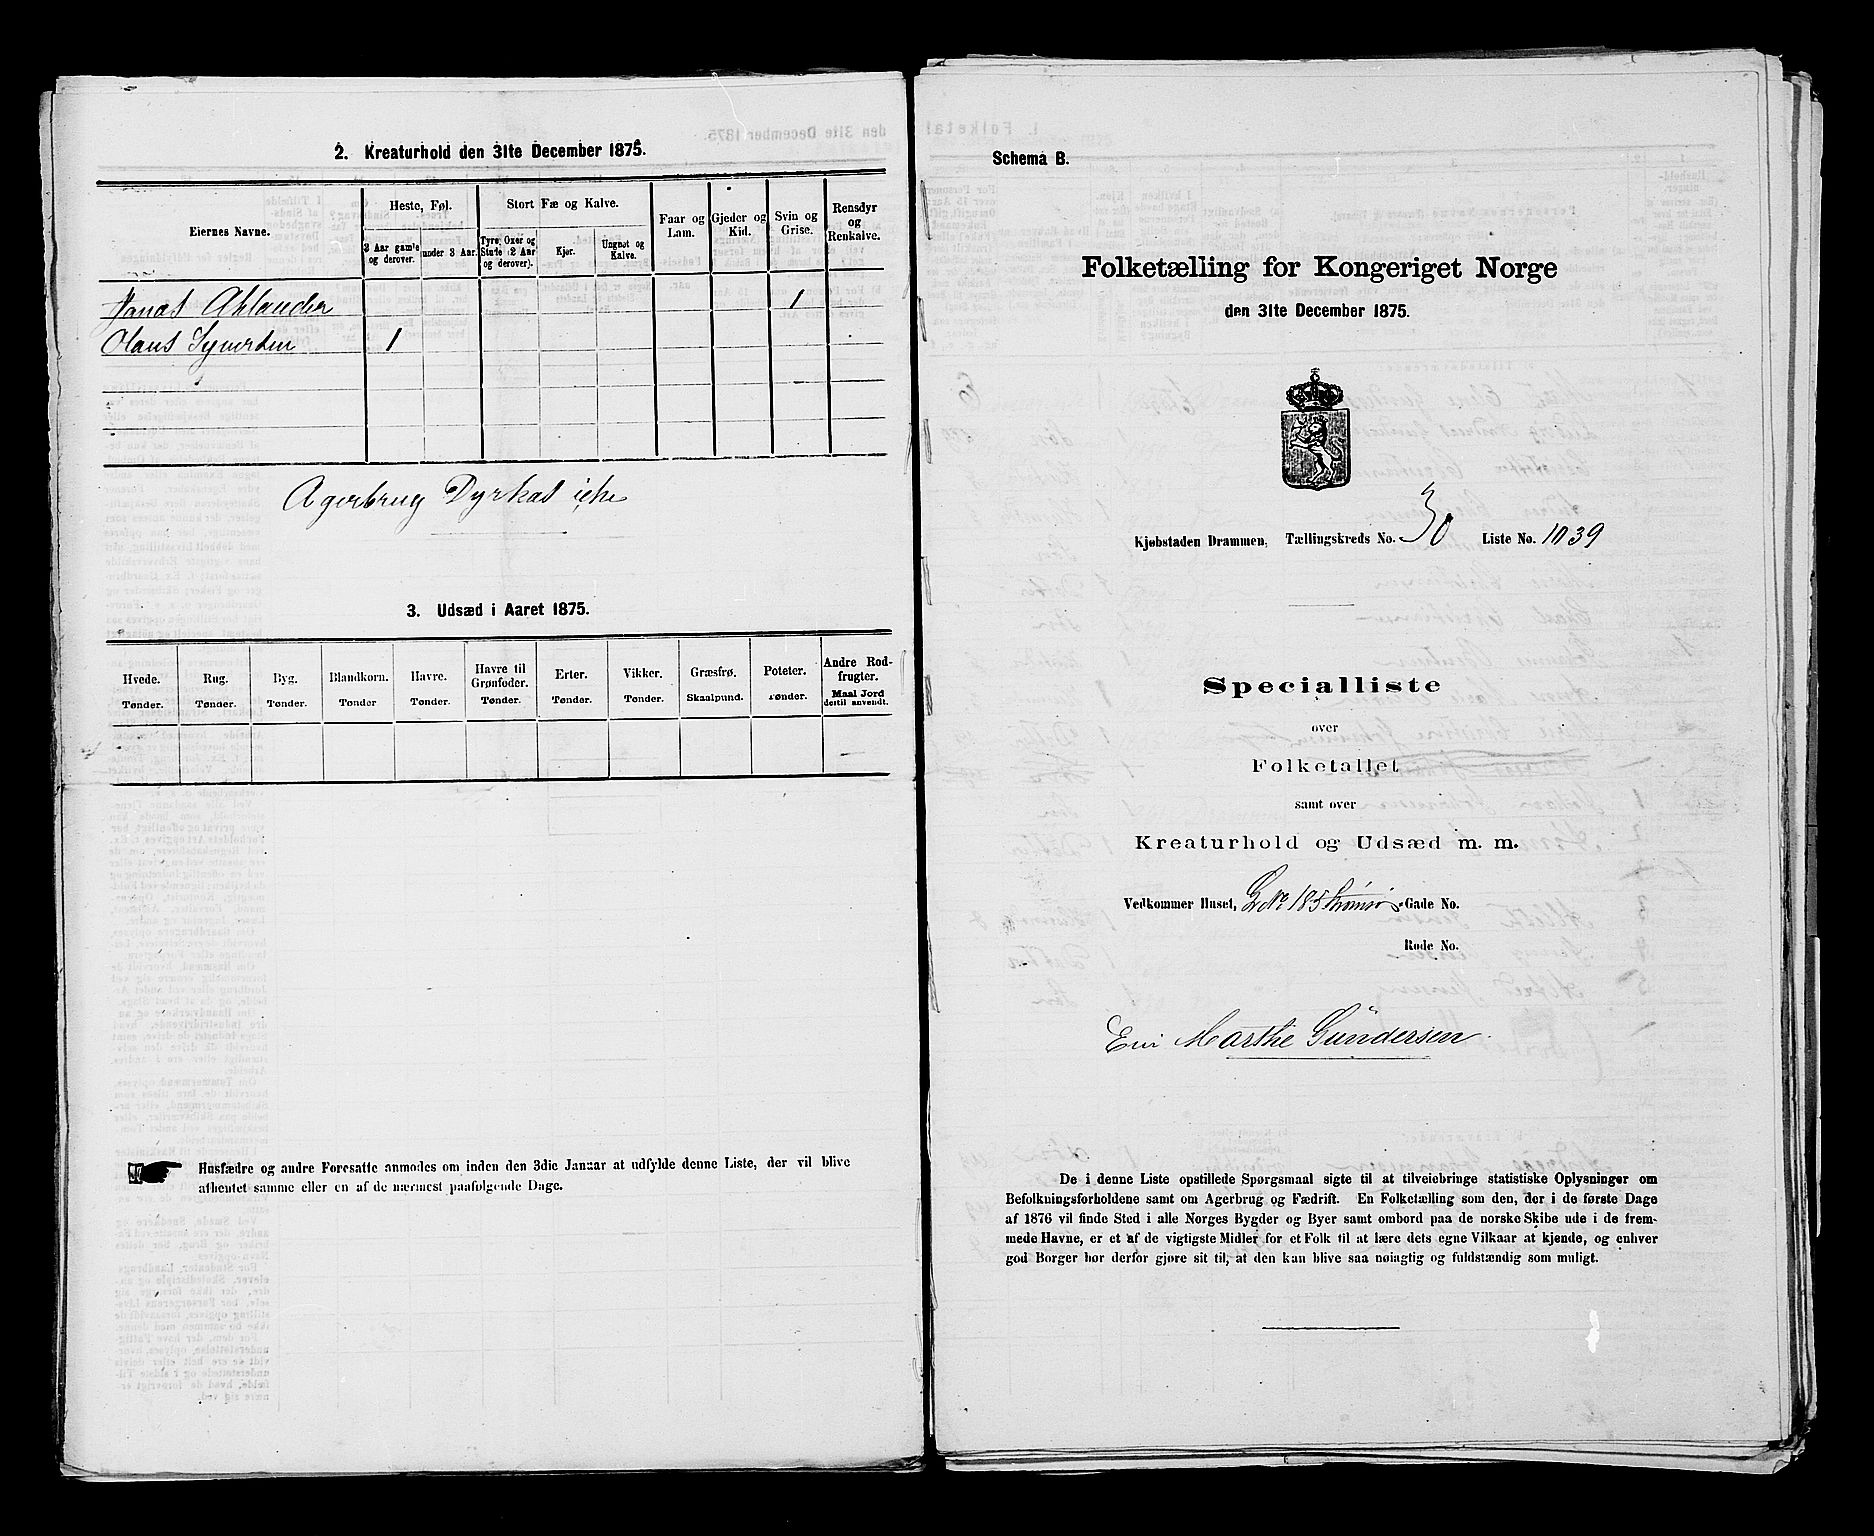 2. Kreaturhold den 31te December 1875.
Eiernes Navne.
Heste, Føl.
3 Aar gamle og derover.
under 3 Aar.
Stort Fæ og Kalve.
Tyre, Oxer og Stude (2 Aar og derover).
Kjør.
Ungnøt og Kalve.
Faar og Lam.
Gjeder og Kid.
Svin og Grise.
Rensdyr og Renkalve.
Jonas Ahlander 1
Olaus Syversen 1
Agerbrug Dyrkas icke
3. Udsæd i Aaret 1875.
Hvede. Tønder.
Rug. Tønder.
Byg. Tønder.
Blandkorn. Tønder
Havre. Tønder.
Havre til Grønfoder. Tønder.
Erter. Tønder.
Vikker. Tønder.
Græsfrø. Skaalpund.
Poteter. Tønder.
Andre Rodfrugter. Maal Jord dertil anvendt.
Husfædre og andre Foresatte anmodes om inden den 3die Januar at udfylde denne Liste, der vil blive
afhentet samme eller en af de nærmest paafølgende Dage.
Schema B.
Folketælling for Kongeriget Norge
den 31te December 1875.
Kjøbstaden Drammen, Tællingskreds No. 30 Liste No. 1039
Specialliste
over
Folketallet
samt over
Kreaturhold og Udsæd m. m.
Vedkommer Huset, G No 185 Strømsø Gade No.
Rode No.
Eier Marthe Gundersen.
De i denne Liste opstillede Spørgsmaal sigte til at tilveiebringe statistiske Oplysninger om
Befolkningsforholdene samt om Agerbrug og Fædrift. En Folketælling som den, der i de første Dage
af 1876 vil finde Sted i alle Norges Bygder og Byer samt ombord paa de norske Skibe ude i de frem-
mede Havne, er et af de vigtigste Midler for et Folk til at lære dets egne Vilkaar at kjende, og enhver
god Borger bør derfor gjøre sit til, at den kan blive saa nøiagtig og fuldstændig som muligt.